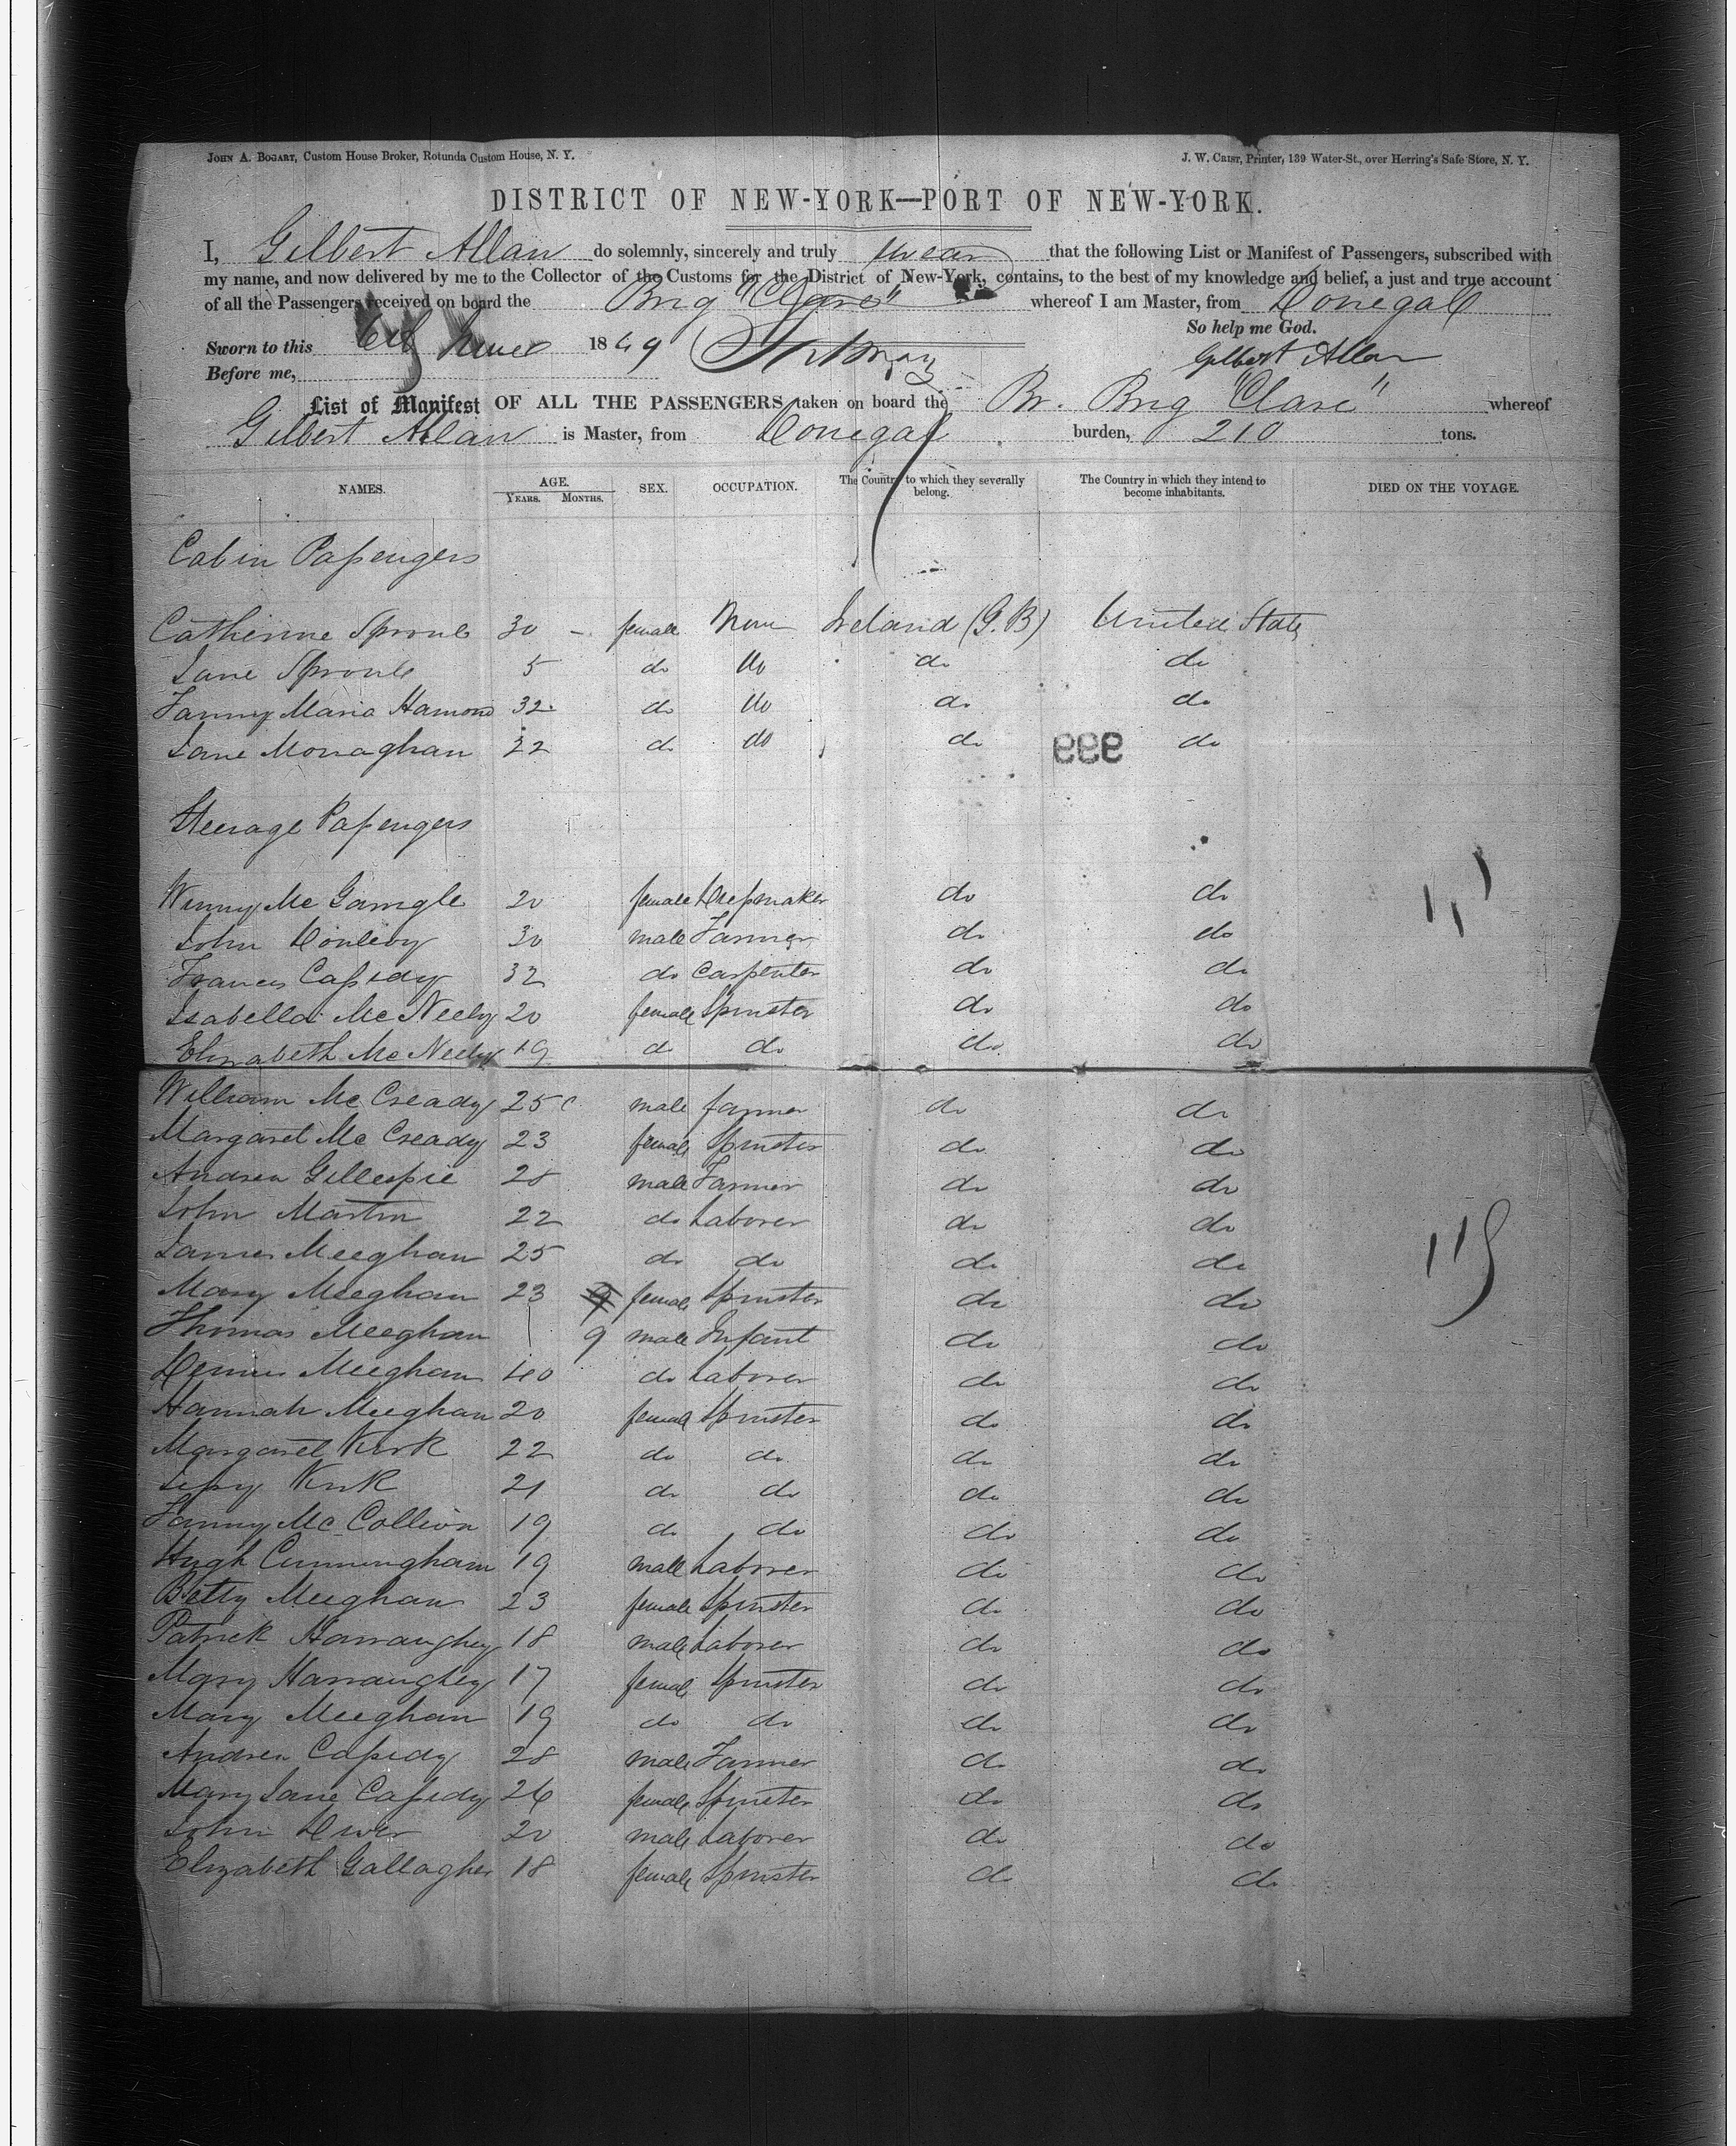 JOHN A. BOGART, Custom House Broker, Rotunda Custom House, N. Y. J. W. CRIST, Printer, 139 Water-St., over Herring's Safe Store, N. Y.
DISTRICT OF NEW-YORK—PORT OF NEW-YORK.
I, Gilbert Allan do solemnly, sincerely and truly swear that the following List or Manifest of Passengers, subscribed with
my name, and now delivered by me to the Collector of the Customs for the District of New-York, contains, to the best of my knowledge and belief, a just and true account
of all the Passengers received on board the Brig "Clare" whereof I am Master, from Donegal
So help me God.
Sworn to this June 1849 Gilbert Allan
Before me,
List of Manifest OF ALL THE PASSENGERS taken on board the Br. Brig "Clare" whereof
Gilbert Allan is Master, from Donegal burden, 210 tons.
NAMES. AGE. YEARS. MONTHS. SEX. OCCUPATION. The Country to which they severally belong. The Country in which they intend to become inhabitants. DIED ON THE VOYAGE.
Cabin Passengers
Catherine Sproule 30 - female None Ireland (G.B) United States
Jane Sproule 5 do do do do
Fanny Maria Hamond 32 do do do do
Jane Monaghan 22 do do do 999 do
Steerage Passengers
Winny Mc Gamgle 20 female Dressmaker do do
John Donlevy 30 male Farmer do do
Francis Cassidy 32 do Carpenter do do
Isabella Mc Neely 20 female Spinster do do
Elizabeth Mc Neely 19 do do do do
William Mc Cready 25 male farmer do do
Margaret Mc Cready 23 female Spinster do do
Andrew Gillespie 28 male Farmer do do
John Martin 22 do Laborer do do
James Meeghan 25 do do do do
Mary Meeghan 23 9 female Spinster do do
Thomas Meeghan 9 male Infant do do
Dennis Meeghan 40 do Laborer do do
Hannah Meeghan 20 female Spinster do do
Margaret Kirk 22 do do do do
Jessy Kirk 21 do do do do
Fanny Mc Collion 19 do do do do
Hugh Cunningham 19 male Laborer do do
Betty Meeghan 23 female Spinster do do
Patrick Harraughey 18 male Laborer do do
Mary Harraughey 17 female Spinster do do
Mary Meeghan 19 do do do do
Andrew Cassidy 28 male Farmer do do
Mary Jane Cassidy 26 female Spinster do do
John Diver 20 male Laborer do do
Elizabeth Gallagher 18 female Spinster do do